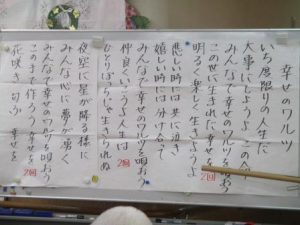 幸せのワルツ
いち度限りの人生だ
大事にしようよ この
みんなで幸せのワルツを唄おう
この世に生まれた幸せを
明るく楽しく生きようよ
2回
悲しい時には共に泣き
嬉しい時には分け合って
みんなで幸せのワルツを唄おう
仲良くいこうよ人生は
ひとりぼっちじゃ生きられぬ
2回
夜空に星が降る様に
みんな心に夢が湧く
みんなで幸せのワルツを唄おう
この手で作ろう 幸せを
花咲き匂う 幸せを
2回